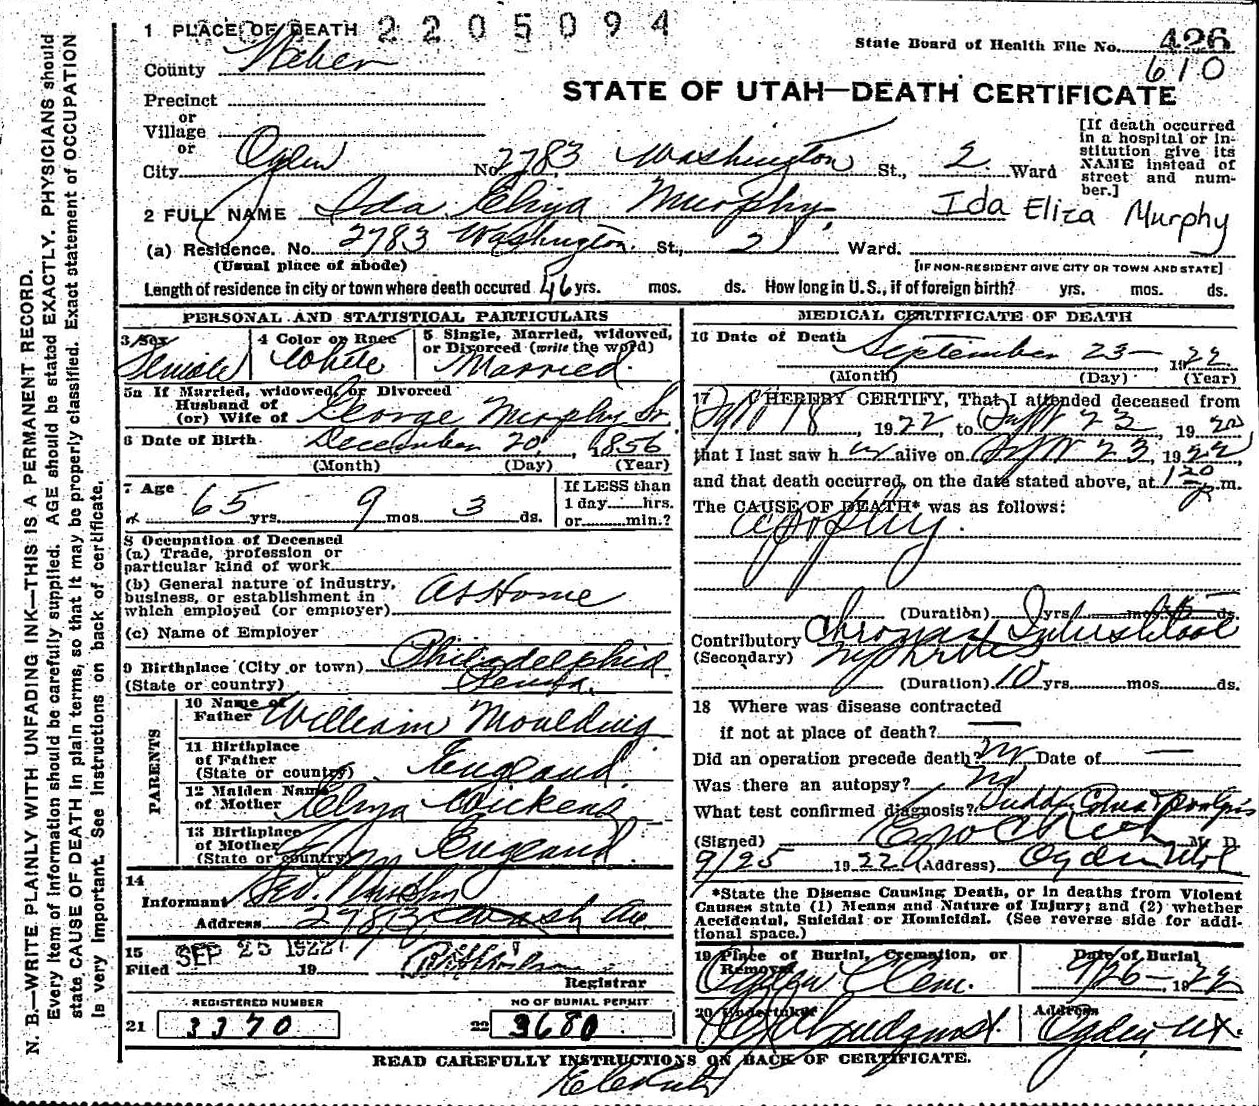 1 PLACE OF DEATH 2205094
State Board of Health File No. 426
County Weber 610
STATE OF UTAH—DEATH CERTIFICATE
Precinct
or
Village
or
City Ogden No. 2783 Washington St., 2 Ward
[If death occurred
in a hospital or in-
stitution give its
NAME instead of
street and num-
ber.]
2 FULL NAME Ida Eliza Murphy Ida Eliza Murphy
(a) Residence. No. 2783 Washington. St., 2 Ward.
(Usual place of abode) [IF NON-RESIDENT GIVE CITY OR TOWN AND STATE]
Length of residence in city or town where death occured 46 yrs. mos. ds. How long in U.S., if of foreign birth? yrs. mos. ds.
PERSONAL AND STATISTICAL PARTICULARS
3 Sex Female
4 Color or Race White
5 Single, Married, widowed,
or Divorced (write the word)
Married.
5a If Married, widowed, or Divorced
Husband of
(or) Wife of George Murphy Sr.
6 Date of Birth December 20, 1856
(Month) (Day) (Year)
7 Age 65 yrs. 9 mos. 3 ds.
If LESS than
1 day hrs.
or min.?
8 Occupation of Deceased
(a) Trade, profession or
particular kind of work
(b) General nature of industry,
business, or establishment in
which employed (or employer) At Home
(c) Name of Employer
9 Birthplace (City or town) Philadelphia
(State or country) Penna.
PARENTS
10 Name of
Father William Moulding
11 Birthplace
of Father
(State or country) England
12 Maiden Name
of Mother Eliza Wickens
13 Birthplace
of Mother
(State or country) England.
14
Informant Geo. Murphy
Address 2783 Wash Ave
15
Filed SEP 25 1922 19
Registrar
REGISTERED NUMBER NO OF BURIAL PERMIT
21 3370 22 3680
MEDICAL CERTIFICATE OF DEATH
16 Date of Death September 23 — 1922
(Month) (Day) (Year)
17 I HEREBY CERTIFY, That I attended deceased from
Sept 18, 1922, to Sept 23, 1922,
that I last saw her alive on Sept 23, 1922
and that death occurred, on the date stated above, at 1 20 P m.
The CAUSE OF DEATH* was as follows:
Apoplexy.
(Duration) yrs. mos. ds.
Contributory Chronic Interstitial
(Secondary) nephritis
(Duration) 10 yrs. mos. ds.
18 Where was disease contracted
if not at place of death? —
Did an operation precede death? no Date of —
Was there an autopsy? no
What test confirmed diagnosis? Sudden Coma & paralysis
(Signed) M. D.
9/25 1922 (Address) Ogden Utah
*State the Disease Causing Death, or in deaths from Violent
Causes state (1) Means and Nature of Injury; and (2) whether
Accidental, Suicidal or Homicidal. (See reverse side for addi-
tional space.)
19 Place of Burial, Cremation, or
Removal
Ogden Cem.
Date of Burial
9/26 — 1922
20 Undertaker
Address
Ogden, Ut.
READ CAREFULLY INSTRUCTIONS ON BACK OF CERTIFICATE.
N. B.—WRITE PLAINLY WITH UNFADING INK—THIS IS A PERMANENT RECORD.
Every item of information should be carefully supplied. AGE should be stated EXACTLY. PHYSICIANS should
state CAUSE OF DEATH in plain terms, so that it may be properly classified. Exact statement of OCCUPATION
is very important. See Instructions on back of certificate.